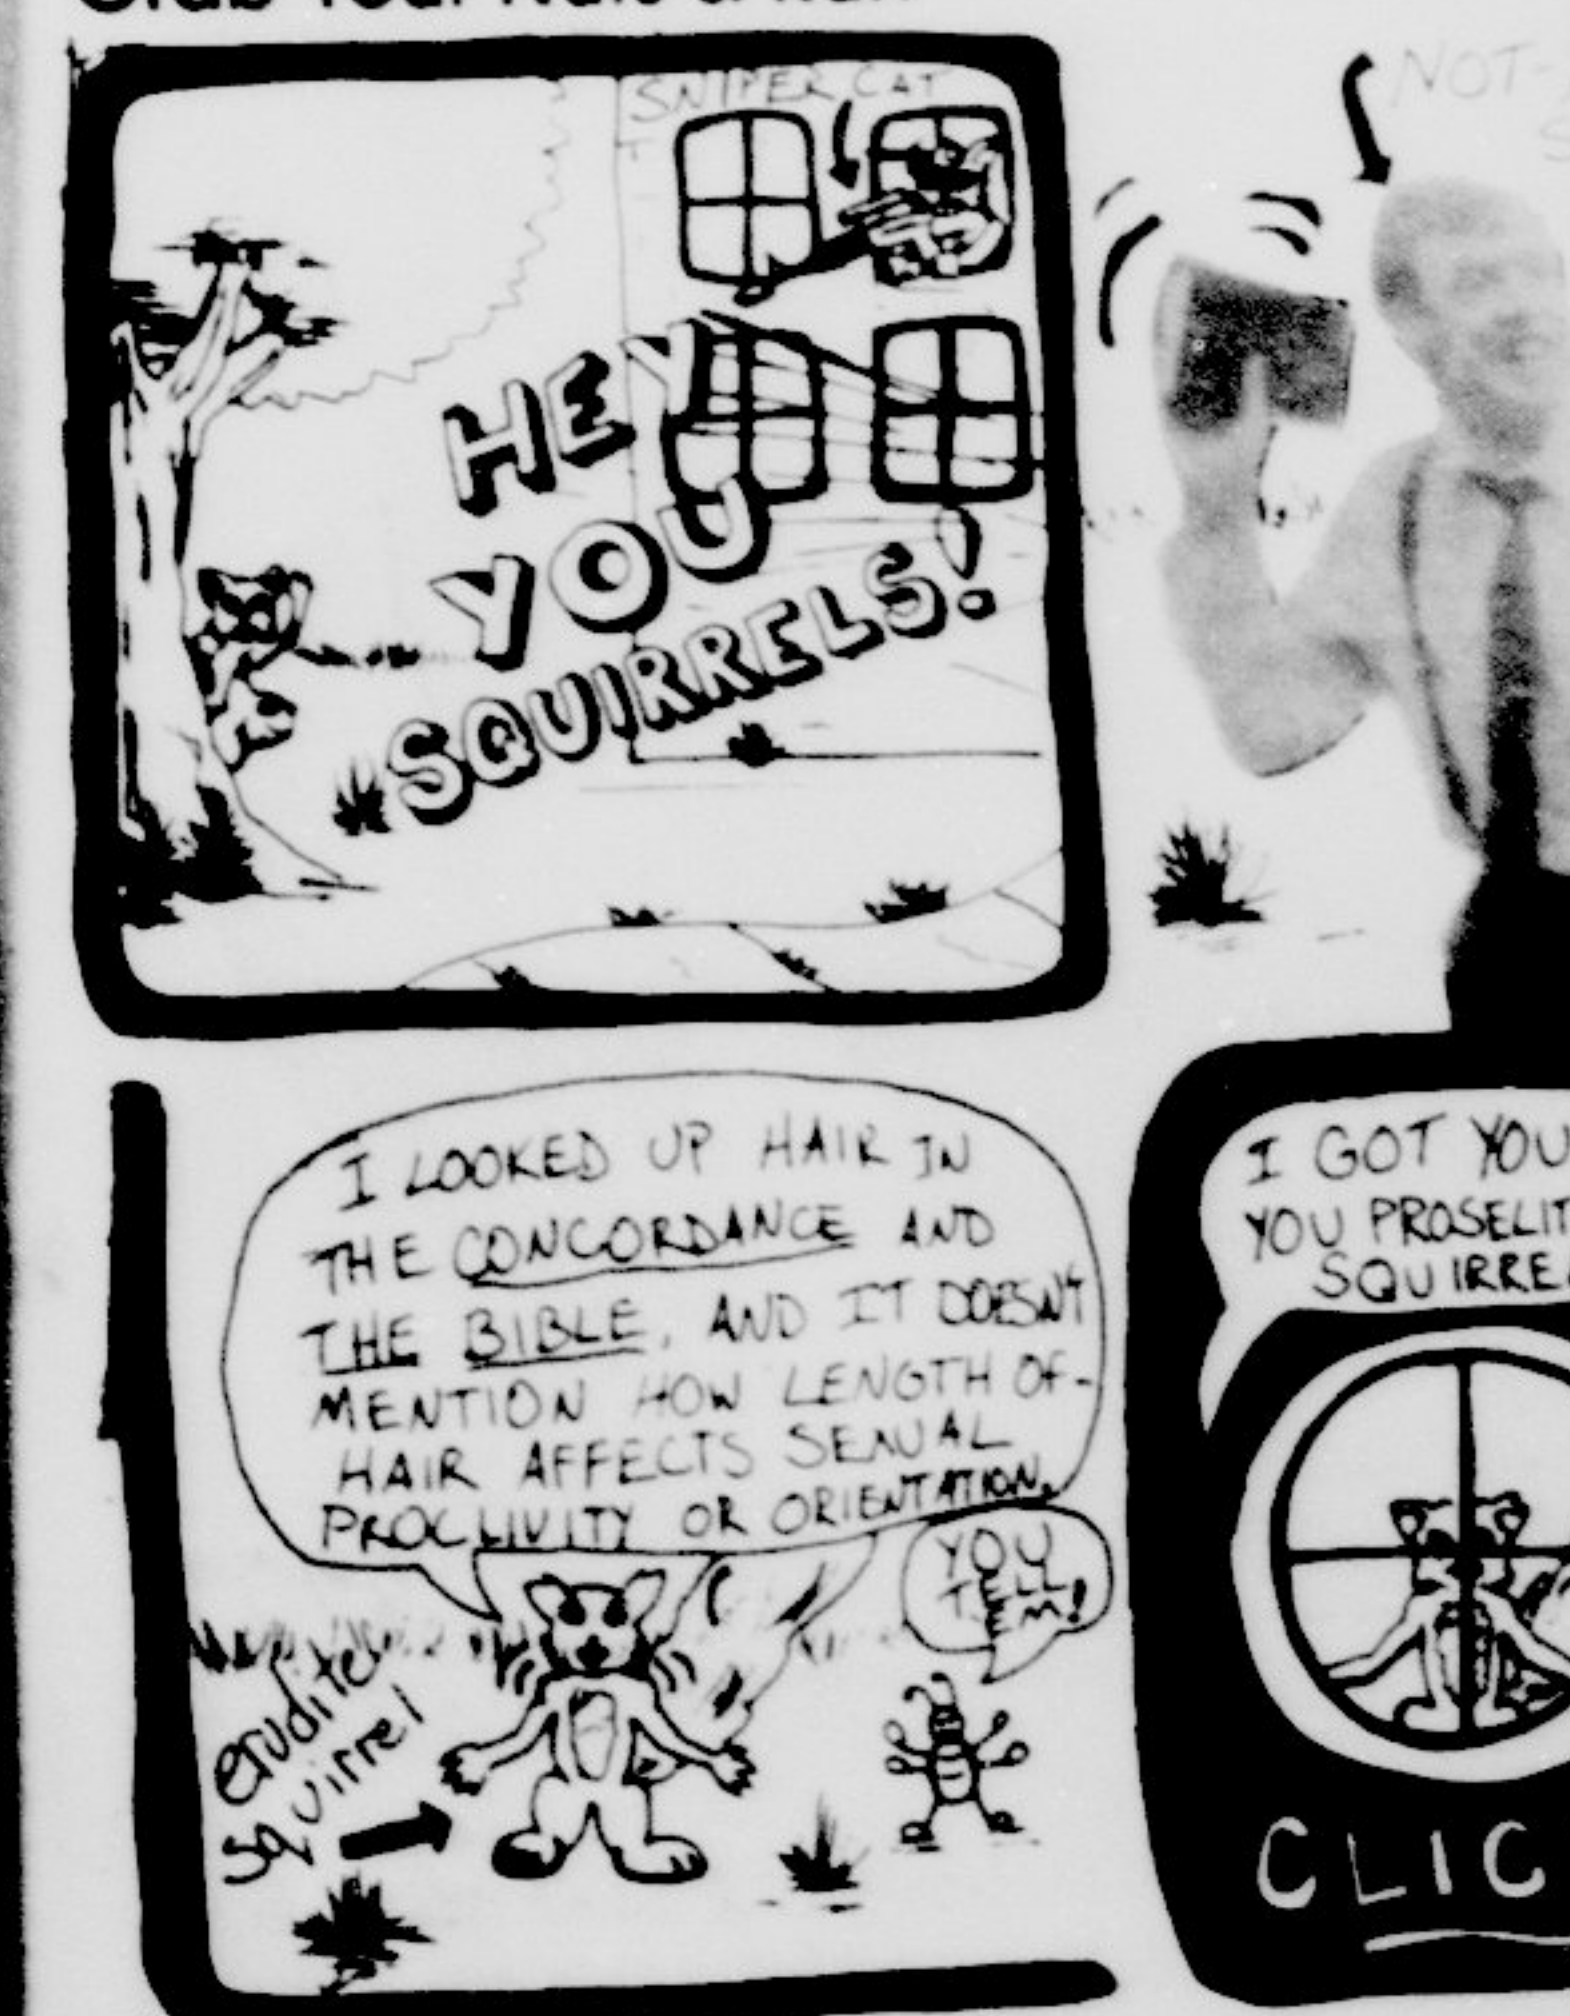 Grab Your Nuts
SNIPER CAT
HEY
YOU
SQUIRRELS!
NOT-
I LOOKED UP HAIR IN
THE CONCORDANCE AND
THE BIBLE, AND IT DOESN'T
MENTION HOW LENGTH OF
HAIR AFFECTS SEXUAL
PROCLIVITY OR ORIENTATION.
YOU
TELL
'IM!
erudite
squirrel
I GOT YOU
YOU PROSELIT
SQUIRREL
CLIC